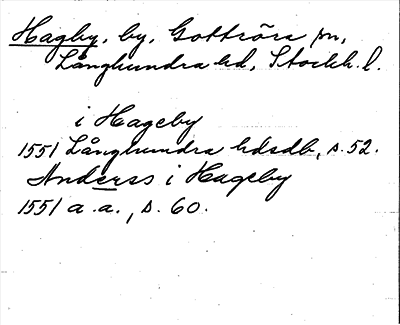 Hagby, by, Gottröra sn,
Långhundra hd, Stockh. l.
i Hageby
1551 Långhundra hdsdb, s. 52.
Anderss i Hageby
1551 a. a., s. 60.